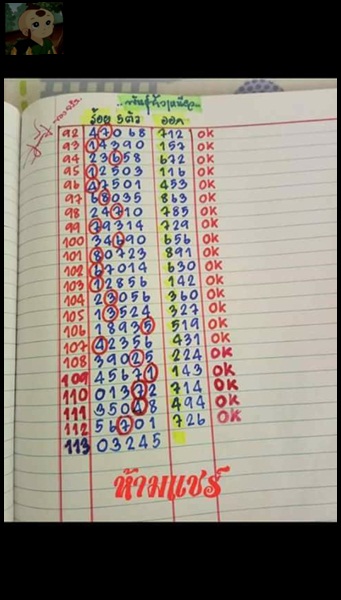 ร้อย 5ตัว ออก
92 47068 712 OK
93 14390 157 OK
94 23658 672 OK
95 12503 116 OK
96 47501 453 OK
97 68035 863 OK
98 24710 785 OK
99 79314 729 OK
100 34690 656 OK
101 80723 891 OK
102 67014 630 OK
103 12856 142 OK
104 23056 360 OK
105 13524 327 OK
106 18935 519 OK
107 42356 431 OK
108 39025 224 OK
109 45671 143 OK
110 01372 714 OK
111 35048 494 OK
112 56701 726 OK
113 03245
ห้ามแชร์